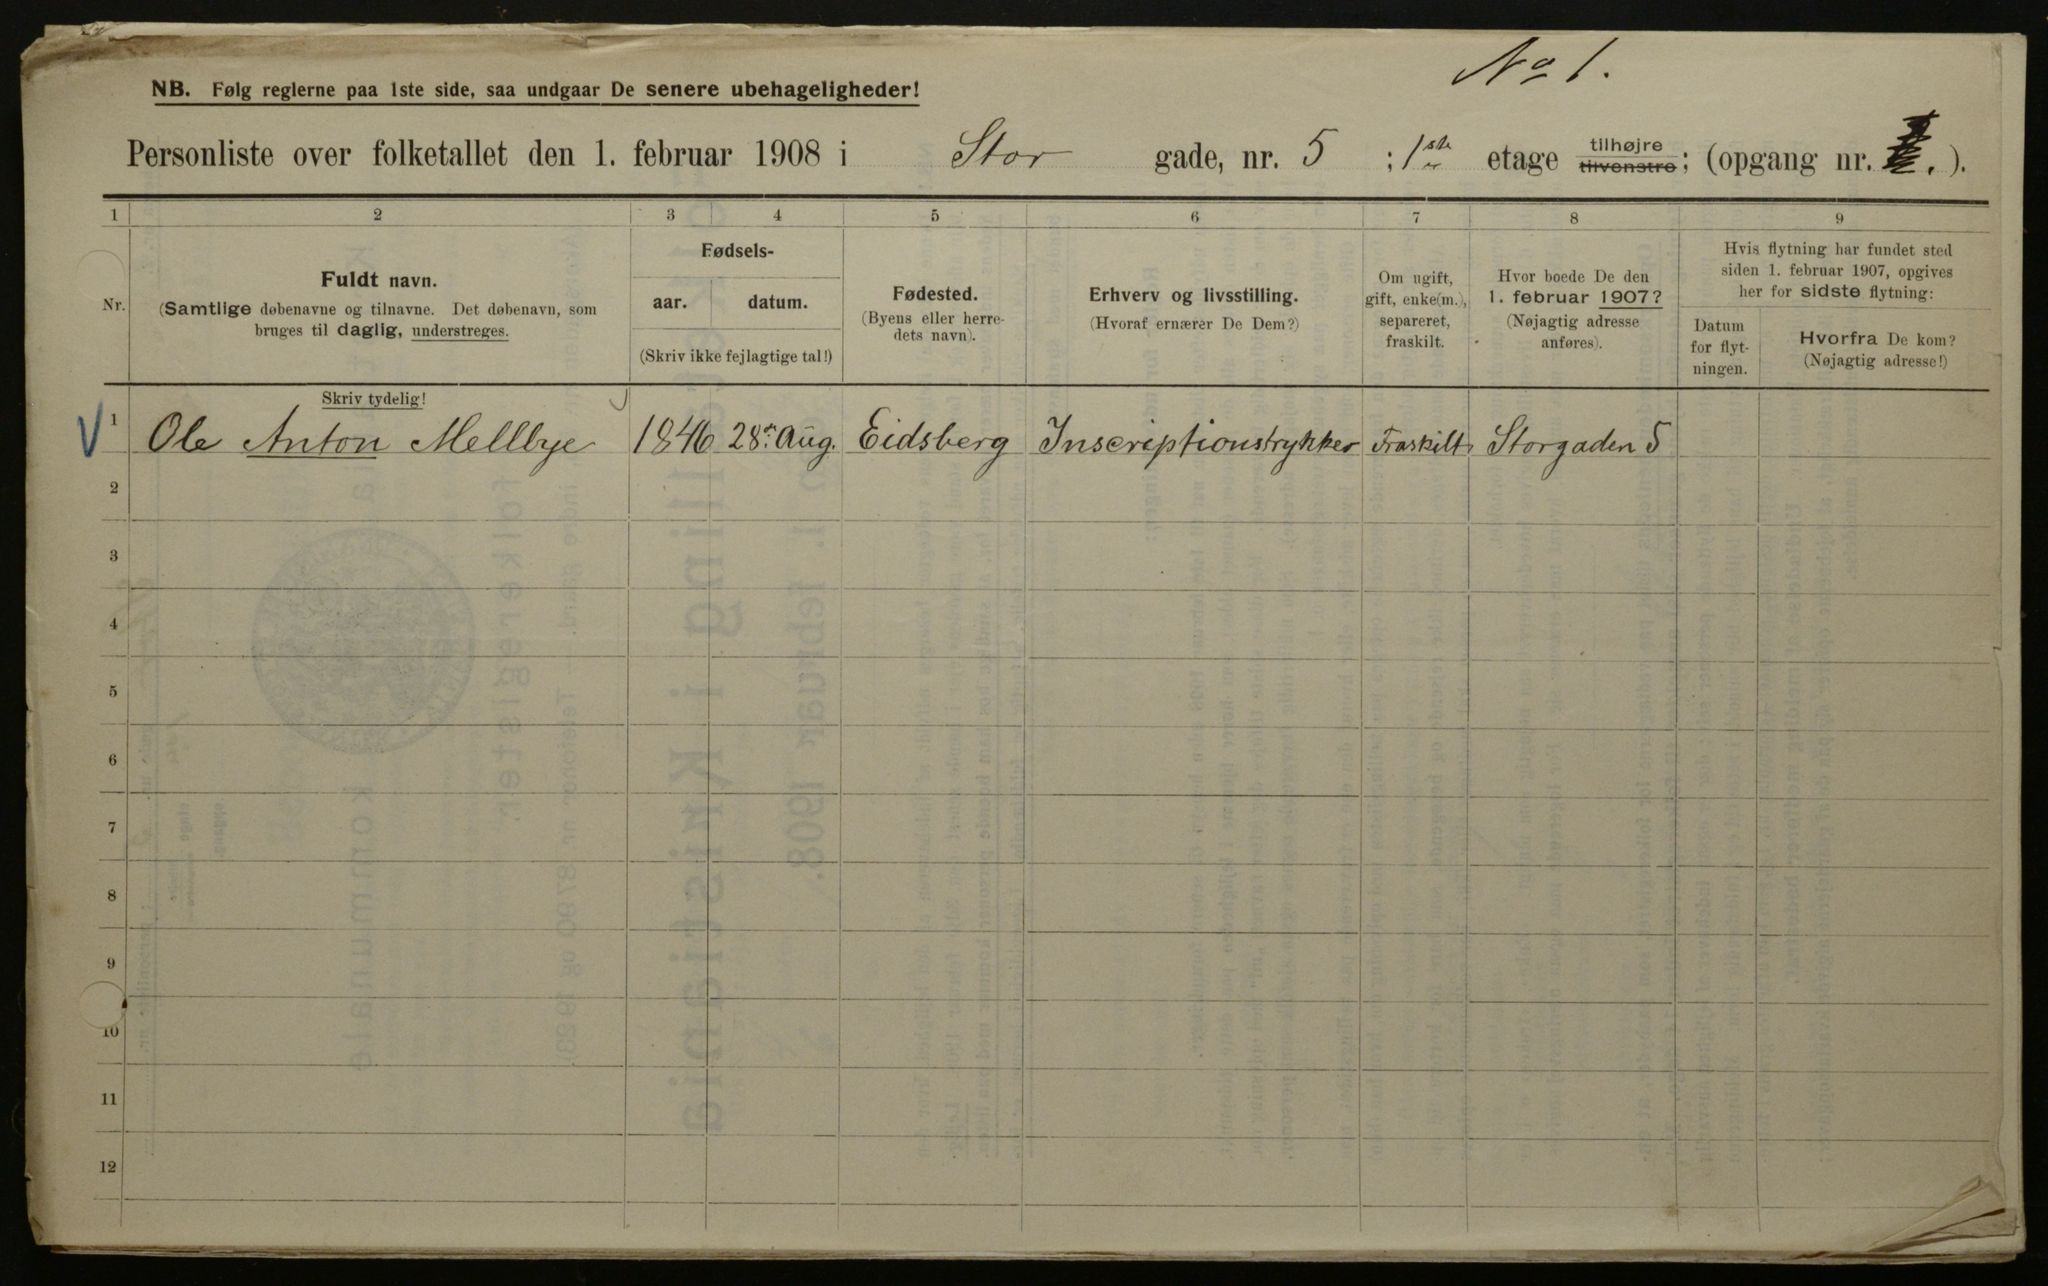 No 1.
NB. Følg reglerne paa 1ste side, saa undgaar De senere ubehageligheder!
Personliste over folketallet den 1. februar 1908 i Stor gade, nr. 5 ; 1ste etage tilhøjre tilvenstre; (opgang nr. ).
1 2 3 4 5 6 7 8 9
Nr.
Fuldt navn.
(Samtlige døbenavne og tilnavne. Det døbenavn, som
bruges til daglig, understreges.
Fødsels-
aar. datum.
(Skriv ikke fejlagtige tal!)
Fødested.
(Byens eller herre-
dets navn).
Erhverv og livsstilling.
(Hvoraf ernærer De Dem?)
Om ugift,
gift, enke(m.),
separeret,
fraskilt.
Hvor boede De den
1. februar 1907?
(Nøjagtig adresse
anføres).
Hvis flytning har fundet sted
siden 1. februar 1907, opgives
her for sidste flytning:
Datum
for flyt-
ningen.
Hvorfra De kom?
(Nøjagtig adresse!)
Skriv tydelig!
V 1 Ole Anton Mellbye 1846 28de Aug. Eidsberg Inscriptionstrykker Fraskilt Storgaden 5
2
3
4
5
6
7
8
9
10
11
12